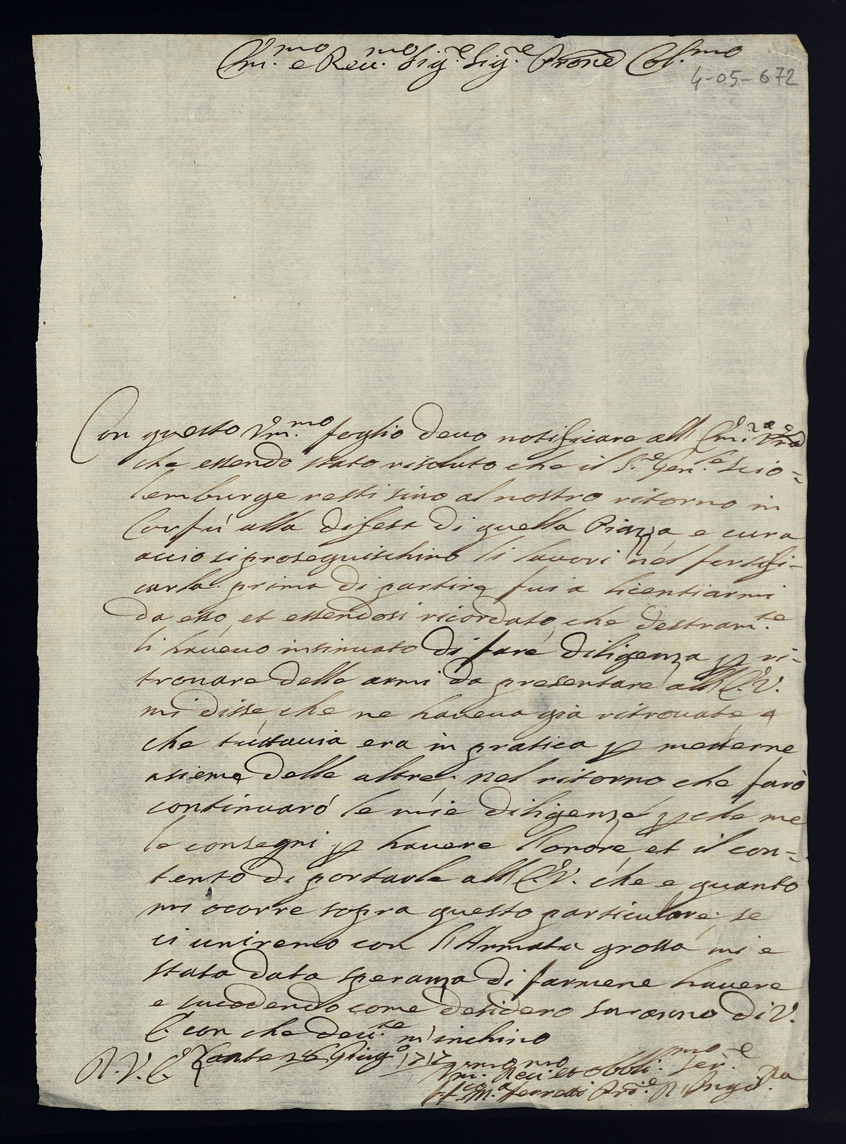 Em.mo e Rev.mo Sig.e Sig.e Prone Col.mo
4-05-672
Con questo Um.mo foglio devo notificare all' Em.za V.ra
che essendo stato risoluto che il S.e Gen.le Scio=
lemburge resti sino al nostro ritorno in
Corfù alla difesa di quella Piazza, e cura
acciò si proseguischino li lavori nel fortifi-
carla prima di partire fui a licentiarmi
da esso, et essendosi ricordato, che destram.te
li havevo insinuato di fare diligenza p ri-
trovare delle armi da presentare all' E. V.
mi disse, che ne haveva già ritrovate, e
che tuttavia era in pratica p metterne
asieme delle altre, nel ritorno che farò
continuarò le mie diligenze p che me
le consegni p havere l'onore et il con=
tento di portarle all' E. V. che e quanto
mi ocorre sopra questo particulare; se
ci uniremo con l'Armata grossa mi e
stata data speranza di farmene havere
e sucedendo come desidero saranno di V.
E. con che dev.te m'inchino
R. V. E. Zante 26 Giug.o 1717
Um. Dev. et Obbli.mo Ser.e
F. M. Ferretti